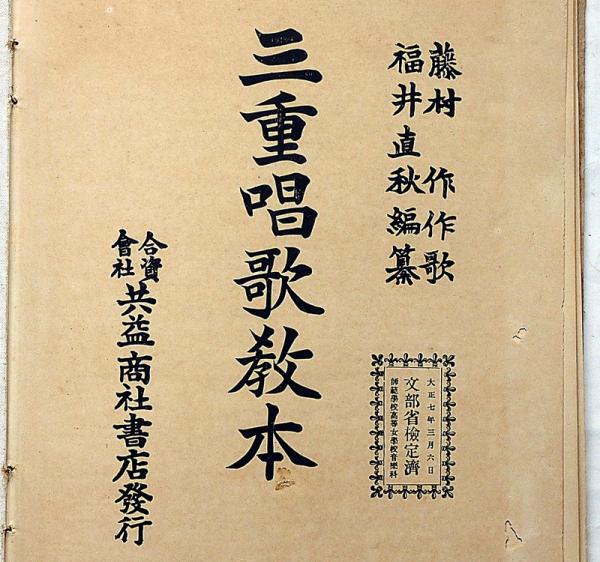 藤村 作作歌
福井直秋編纂
大正七年三月六日
文部省檢定濟
師範學校高等女學校音樂科
三重唱歌教本
合資會社 共益商社書店發行